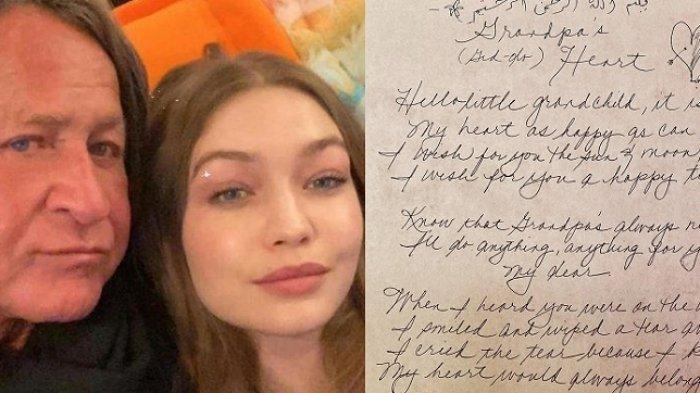 بسم الله الرحمن الرحيم
Grandpa's
(Gid-do) Heart
Hello little grandchild, it is
My heart as happy as can
I wish for you the sun & moon
I wish for you a happy
Know that Grandpa's always
I'll do anything, anything for
my dear
When I heard you were on the
I smiled and wiped a tear
I cried the tear because I
My heart would always